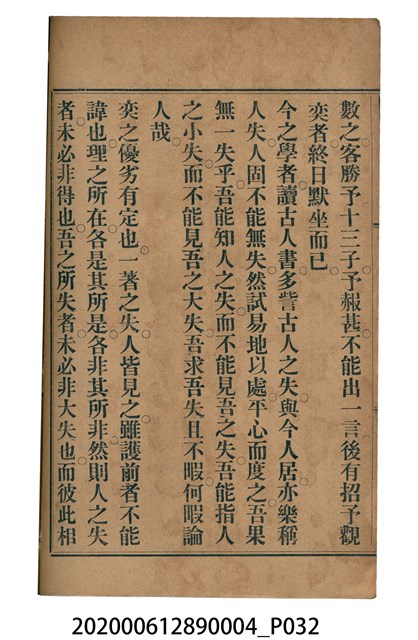 數之客勝予十三子予赧甚不能出一言後有招予觀
奕者終日默坐而已
今之學者讀古人書多訾古人之失與今人居亦樂稱
人失人固不能無失然試易地以處平心而度之吾果
無一失乎吾能知人之失而不能見吾之失吾能指人
之小失而不能見吾之大失吾求吾失且不暇何暇論
人哉
奕之優劣有定也一著之失人皆見之雖護前者不能
諱也理之所在各是其所是各非其所非然則人之失
者未必非得也吾之所失者未必非大失也而彼此相
202000612890004_P032